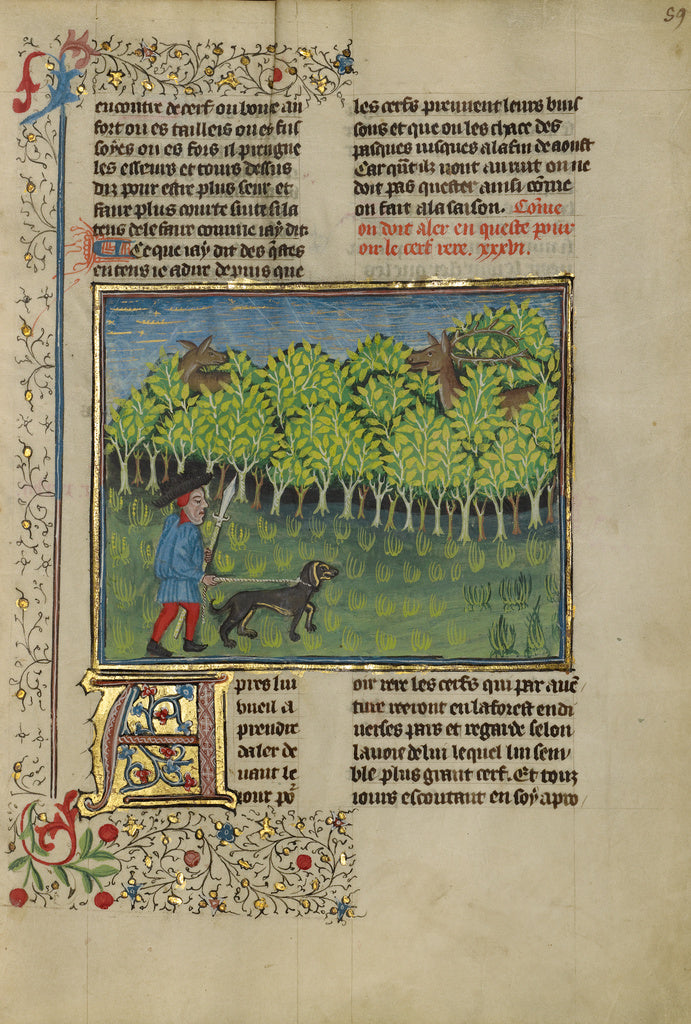 59
encontre de cerf ou bone au
fort ou es tailleis ou es buis
soyes ou es fors il prengne
les esseurs et tours dessus
diz pour estre plus seur et
faire plus courte suite sila
tens de le faire comme iay dit
Ce que iay dit des q̃stes
en tens ie adire depuis que
les cerfs prennent leurs buis
sons et que ou les chace des
pasques iusques a la fin de aoust
Car qũt ilz uont au ruit on ne
doit pas quester ainsi cõme
on fait a la saison. Cõme
on doit aler en queste pour
oir le cerf rere. xxxvi.
Apres lui
vueil a
prendre
daler de
uant le
iour po᷑
oir rere les cerfs qui par auẽ
ture reeront en la forest en di
uerses pars et regarde selon
la uoie de lui lequel lui sem
ble plus grant cerf. Et touz
iours escoutant en soy apro